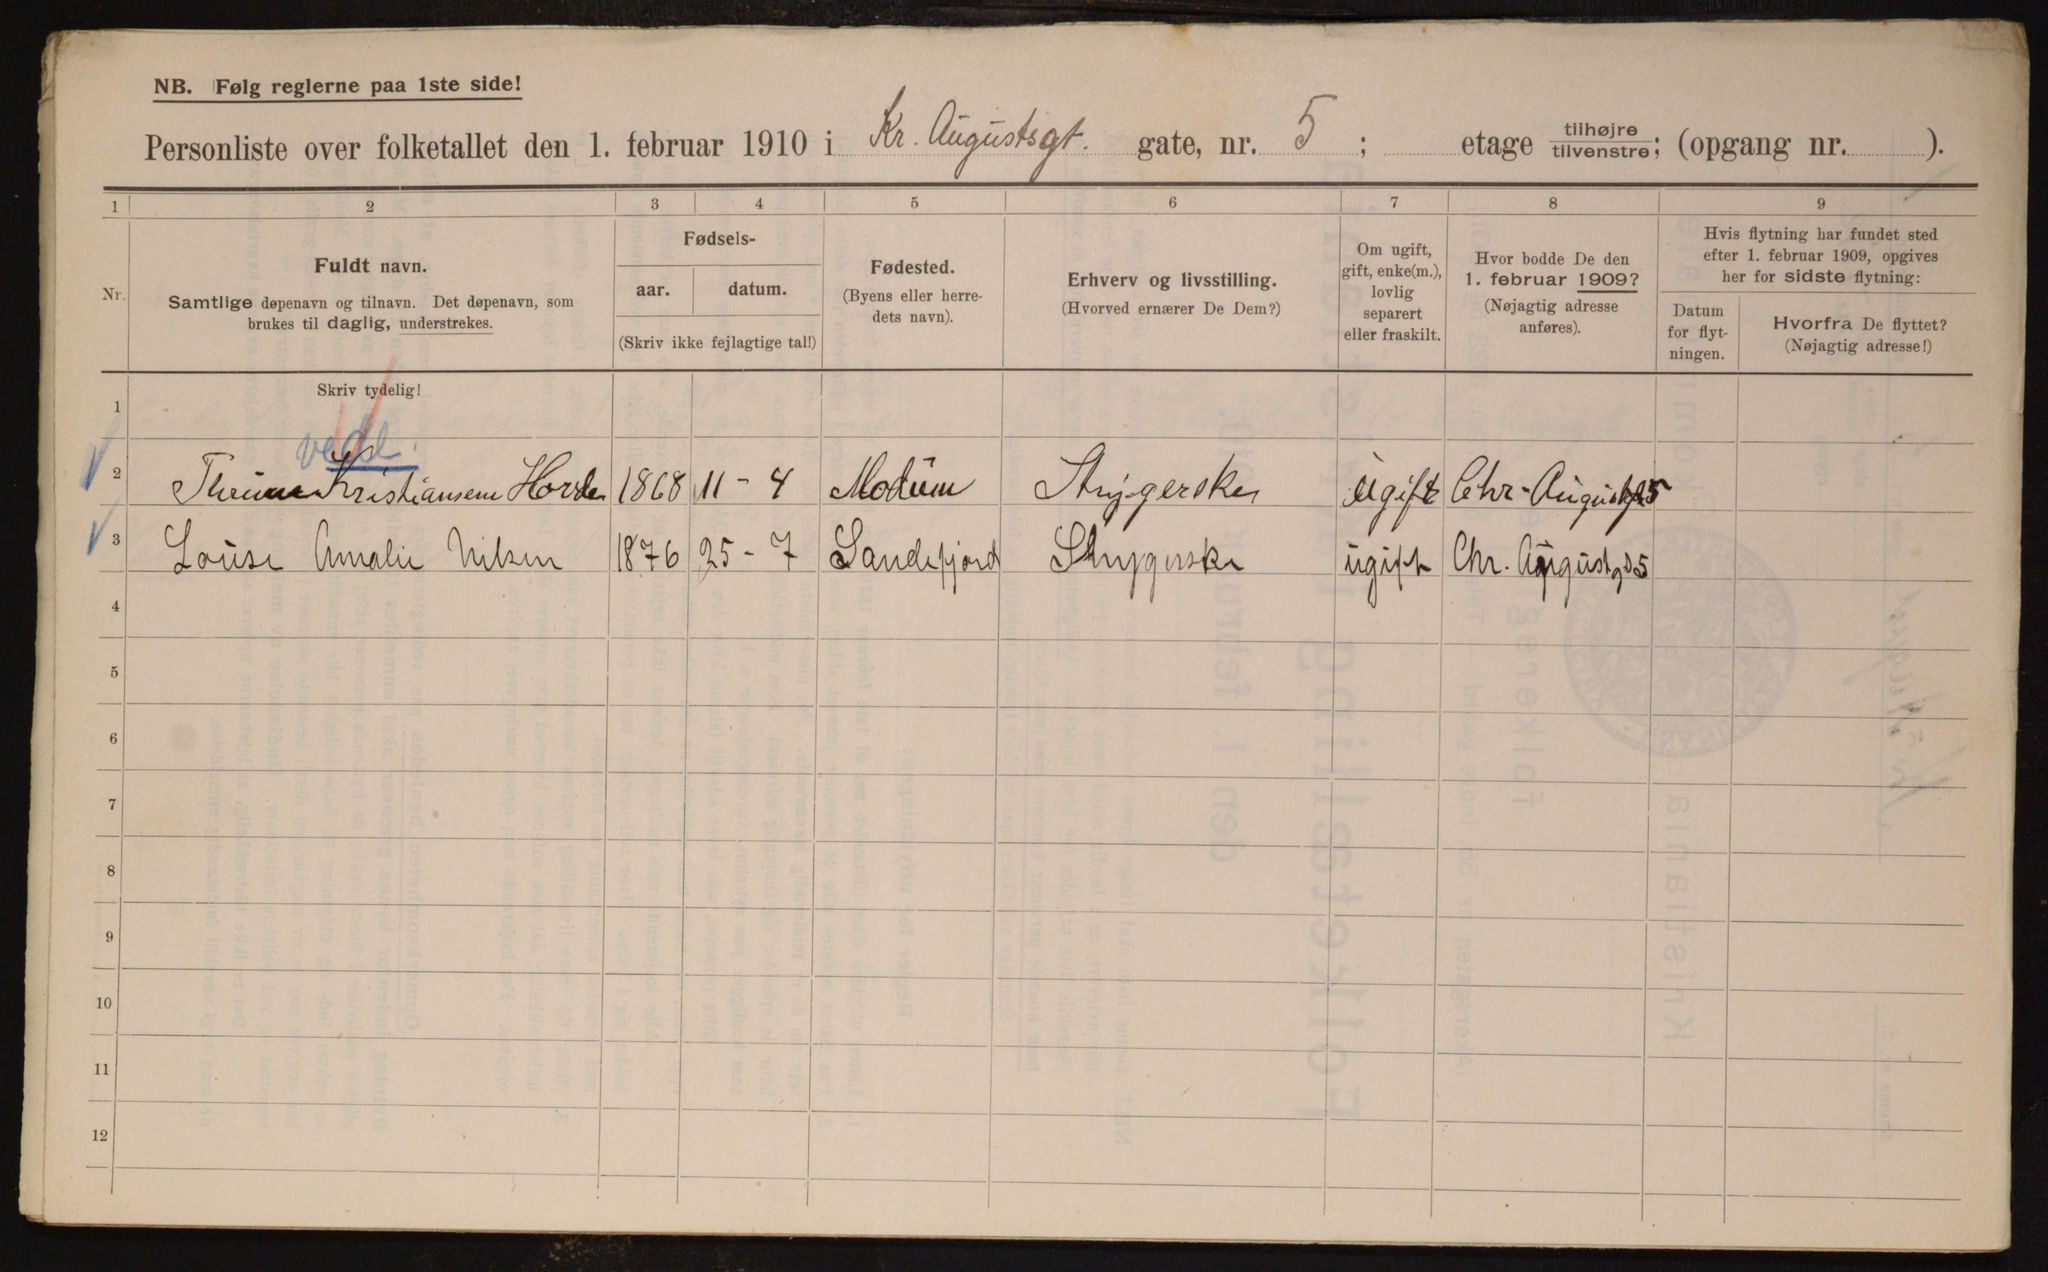 NB. Følg reglerne paa 1ste side!
Personliste over folketallet den 1. februar 1910 i Kr. Augustsgt. gate, nr. 5 ; etage tilhøjre tilvenstre; (opgang nr. ).
1 2 3 4 5 6 7 8 9
Nr.
Fuldt navn.
Samtlige døpenavn og tilnavn. Det døpenavn, som
brukes til daglig, understrekes.
Fødsels-
aar. datum.
(Skriv ikke fejlagtige tal!)
Fødested.
(Byens eller herre-
dets navn).
Erhverv og livsstilling.
(Hvorved ernærer De Dem?)
Om ugift,
gift, enke(m.),
lovlig
separert
eller fraskilt.
Hvor bodde De den
1. februar 1909?
(Nøjagtig adresse
anføres).
Hvis flytning har fundet sted
efter 1. februar 1909, opgives
her for sidste flytning:
Datum
for flyt-
ningen.
Hvorfra De flyttet?
(Nøjagtig adresse!)
Skriv tydelig!
1
2 Kristiansem 1868 11 - 4 Modum Strygerske ugift Chr. Augustgd 5
3 Louise Amalie Nilsen 1876 25 - 7 Sandefjord Strygerske ugift Chr. Augustgd 5
4
5
6
7
8
9
10
11
12